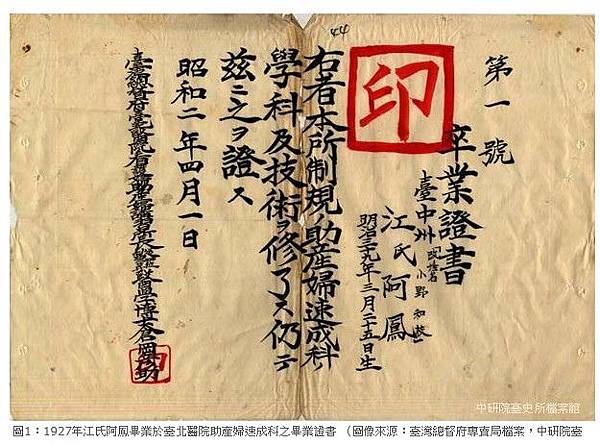 44
印
第一號
卒業證書
臺中州
改姓名
小野和
江氏阿鳳
九年三月二十五日生
右者本所制規ノ助産婦速成科ノ
學科及技術ヲ修了ス仍テ
茲ニ之ヲ證ス
昭和二年四月一日
臺灣總督府臺北醫院
中研院臺史所檔案館
圖1：1927年江氏阿鳳畢業於臺北醫院助產婦速成科之畢業證書 （圖像來源：臺灣總督府專賣局檔案，中研院臺